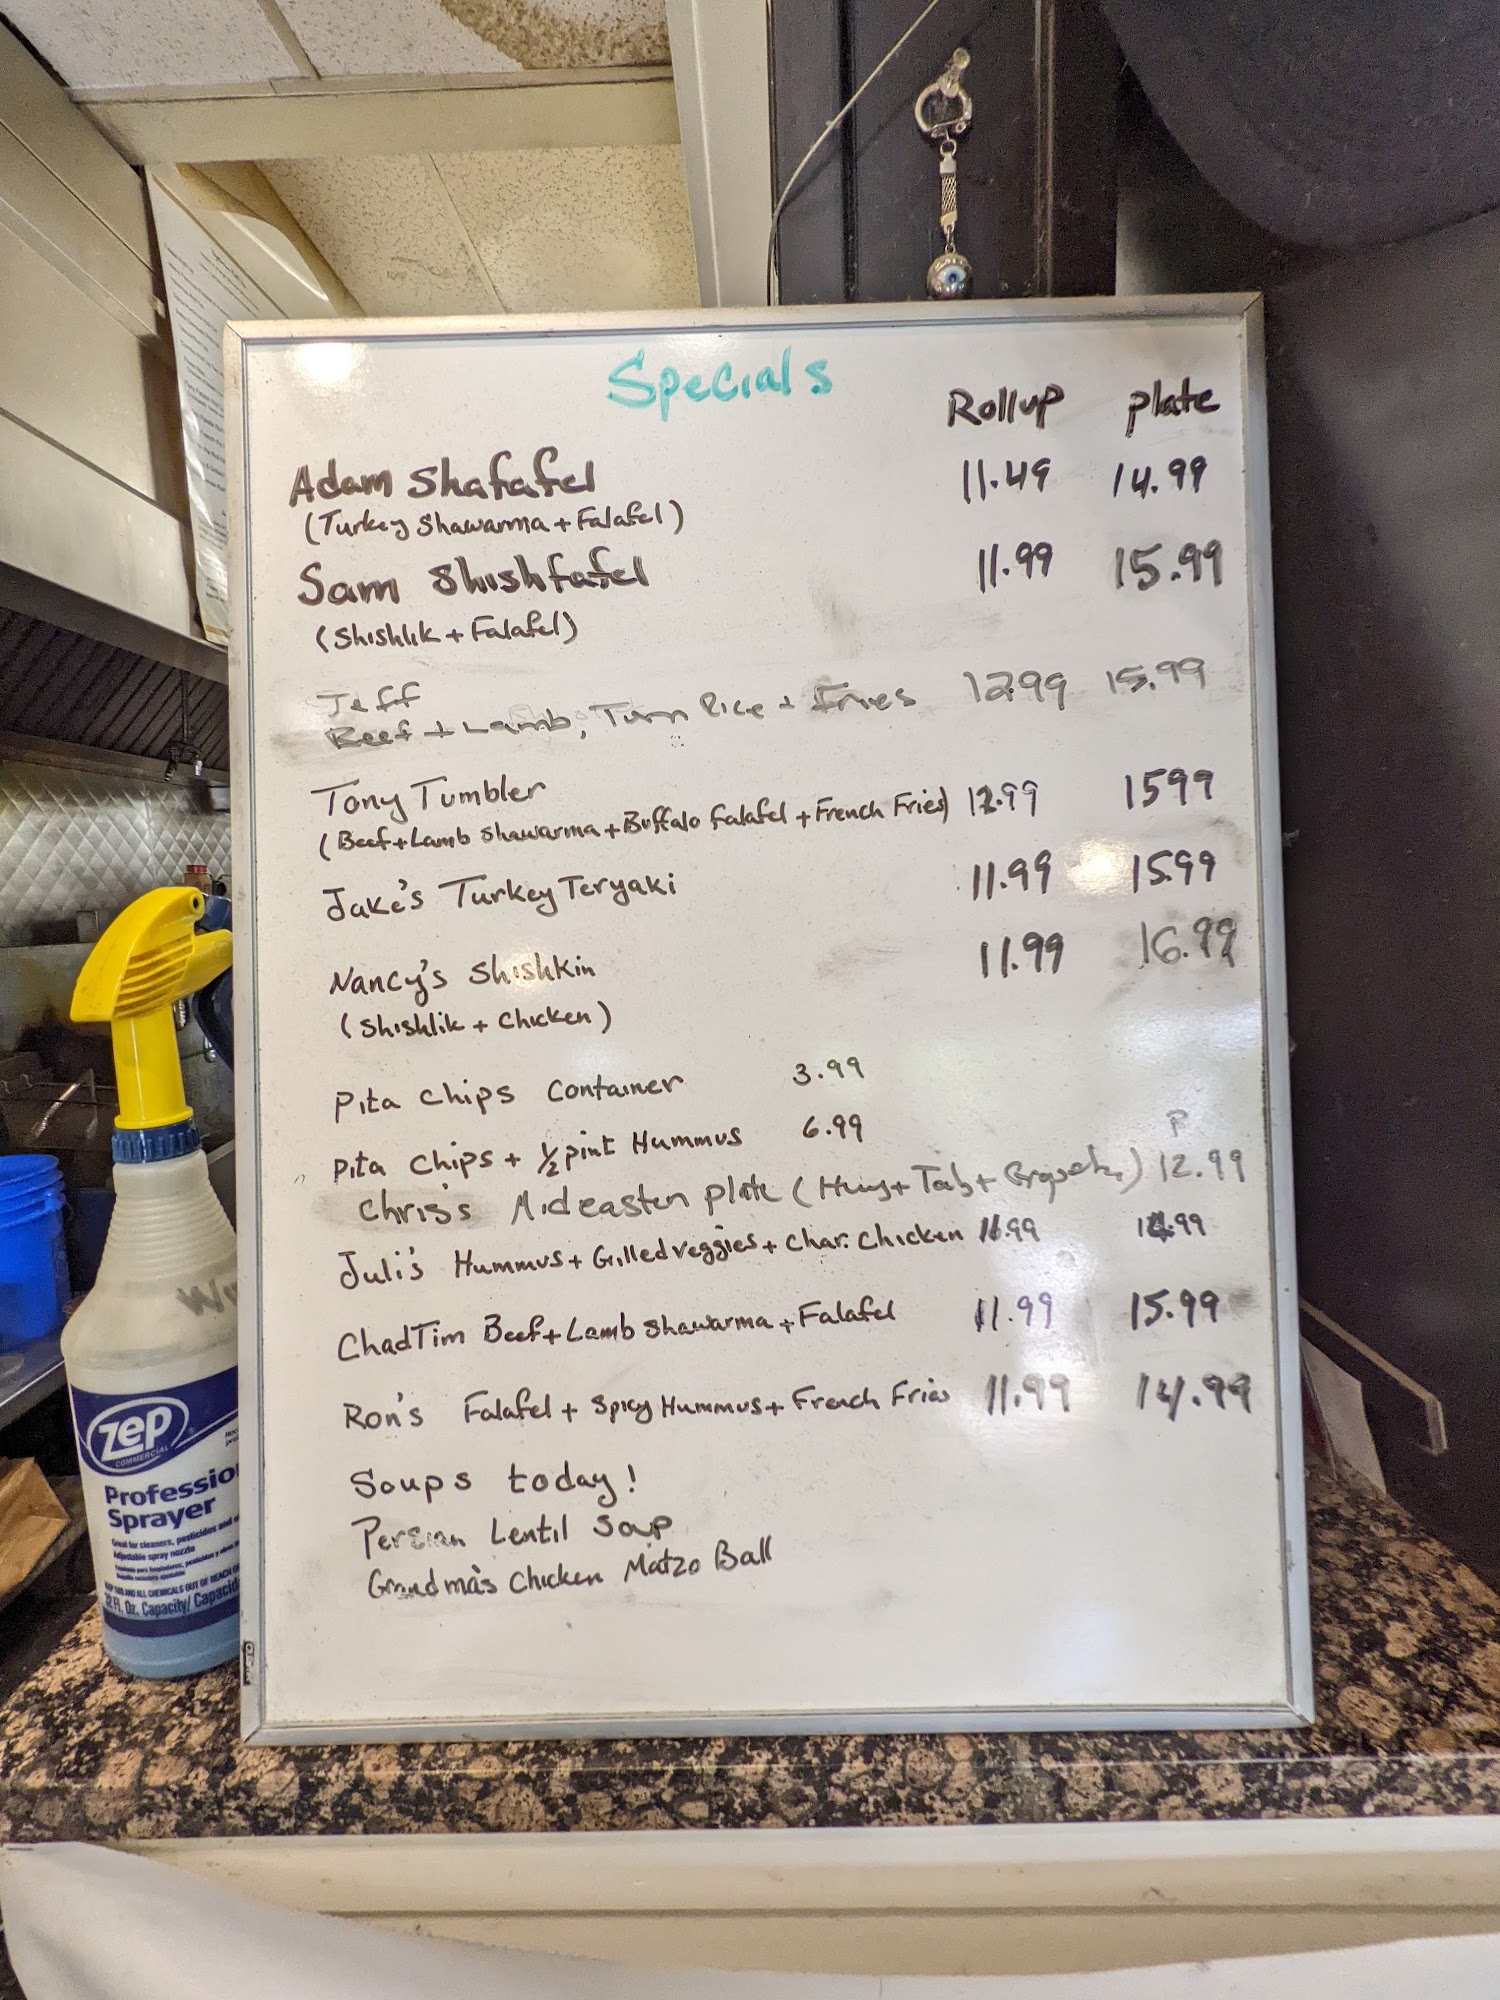 Specials
Rollup plate
Adam Shafafel 11.49 14.99
(Turkey Shawarma + Falafel)
Sam Shishfafel 11.99 15.99
(Shishlik + Falafel)
Jeff
Beef + Lamb, Rice + Fries 12.99 15.99
Tony Tumbler
(Beef+Lamb Shawarma + Buffalo falafel + French Fries) 12.99 1599
Jake's Turkey Teryaki 11.99 15.99
Nancy's Shishkin 11.99 16.99
(Shishlik + Chicken)
Pita Chips Container 3.99
Pita Chips + 1/2 pint Hummus 6.99
P
Chris's Mideastern plate ( + Tab + ) 12.99
Juli's Hummus + Grilled veggies + Char. Chicken
ChadTim Beef + Lamb Shawarma + Falafel 11.99 15.99
Ron's Falafel + Spicy Hummus + French Fries 11.99 14.99
Soups today!
Persian Lentil Soup
Grandma's Chicken Matzo Ball
zep
COMMERCIAL
Professio
Sprayer
Great for cleaners, pesticides and
Adjustable spray nozzle
32 Fl. Oz. Capacity/ Capacid